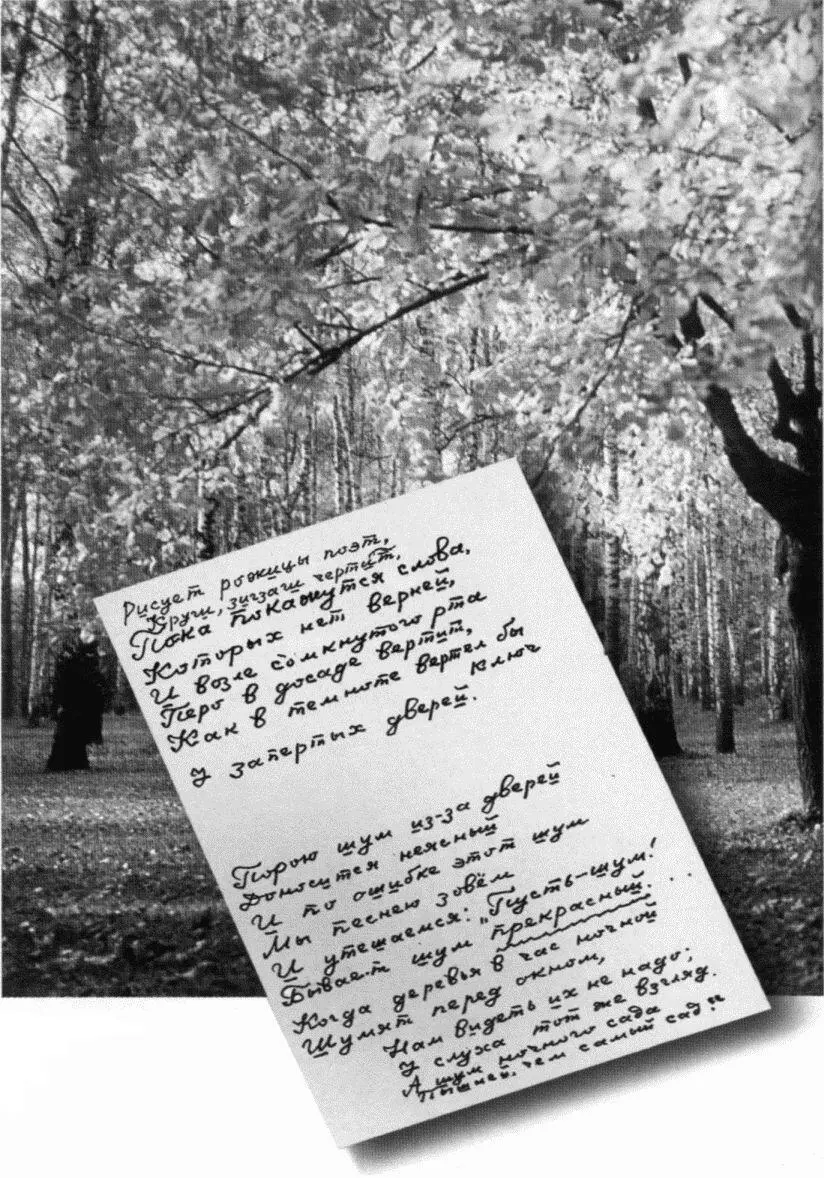 Рисует рожицы поэт,
Круги, зигзаги чертит,
Пока покажутся слова,
Которых нет верней,
И возле сомкнутого рта
Перо в досаде вертит,
Как в темноте вертел бы
ключ
у запертых дверей.
Порою шум из-за дверей
Доносится неясный
И по ошибке этот шум
Мы песнею зовём
И утешаемся: „Пусть-шум!
Бывает шум прекрасный...
Когда деревья в час ночной
Шумят перед окном,
Нам видеть их не надо;
у слуха тот же взгляд.
А шум ночного сада
Пышней, чем самый сад!"